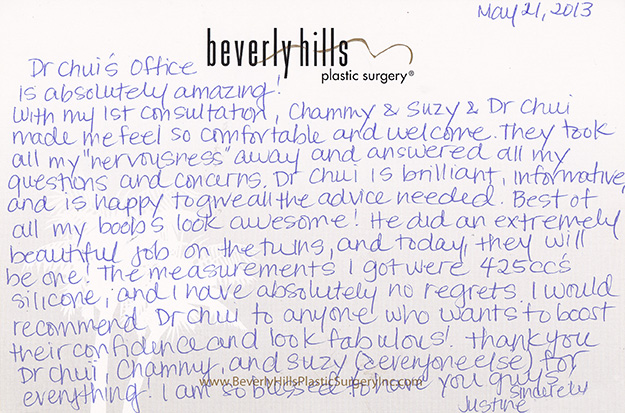 May 21, 2013
beverly hills
plastic surgery®
Dr Chui's Office
is absolutely amazing!
With my 1st consultation, Chammy & Suzy & Dr Chui
made me feel so comfortable and welcome. They took
all my "nervousness" away and answered all my
questions and concerns. Dr Chui is brilliant, informative,
and is happy to give all the advice needed. Best of
all my boobs look awesome! He did an extremely
beautiful job on the twins, and today they will
be one! The measurements I got were 425cc's
silicone, and I have absolutely no regrets. I would
recommend Dr Chui to anyone who wants to boost
their confidence and look fabulous! Thank you
Dr Chui, Chammy, and Suzy (& everyone else) for
everything! I am so blessed to have you guys.
www.BeverlyHillsPlasticSurgeryInc.com
Sincerely
Justine